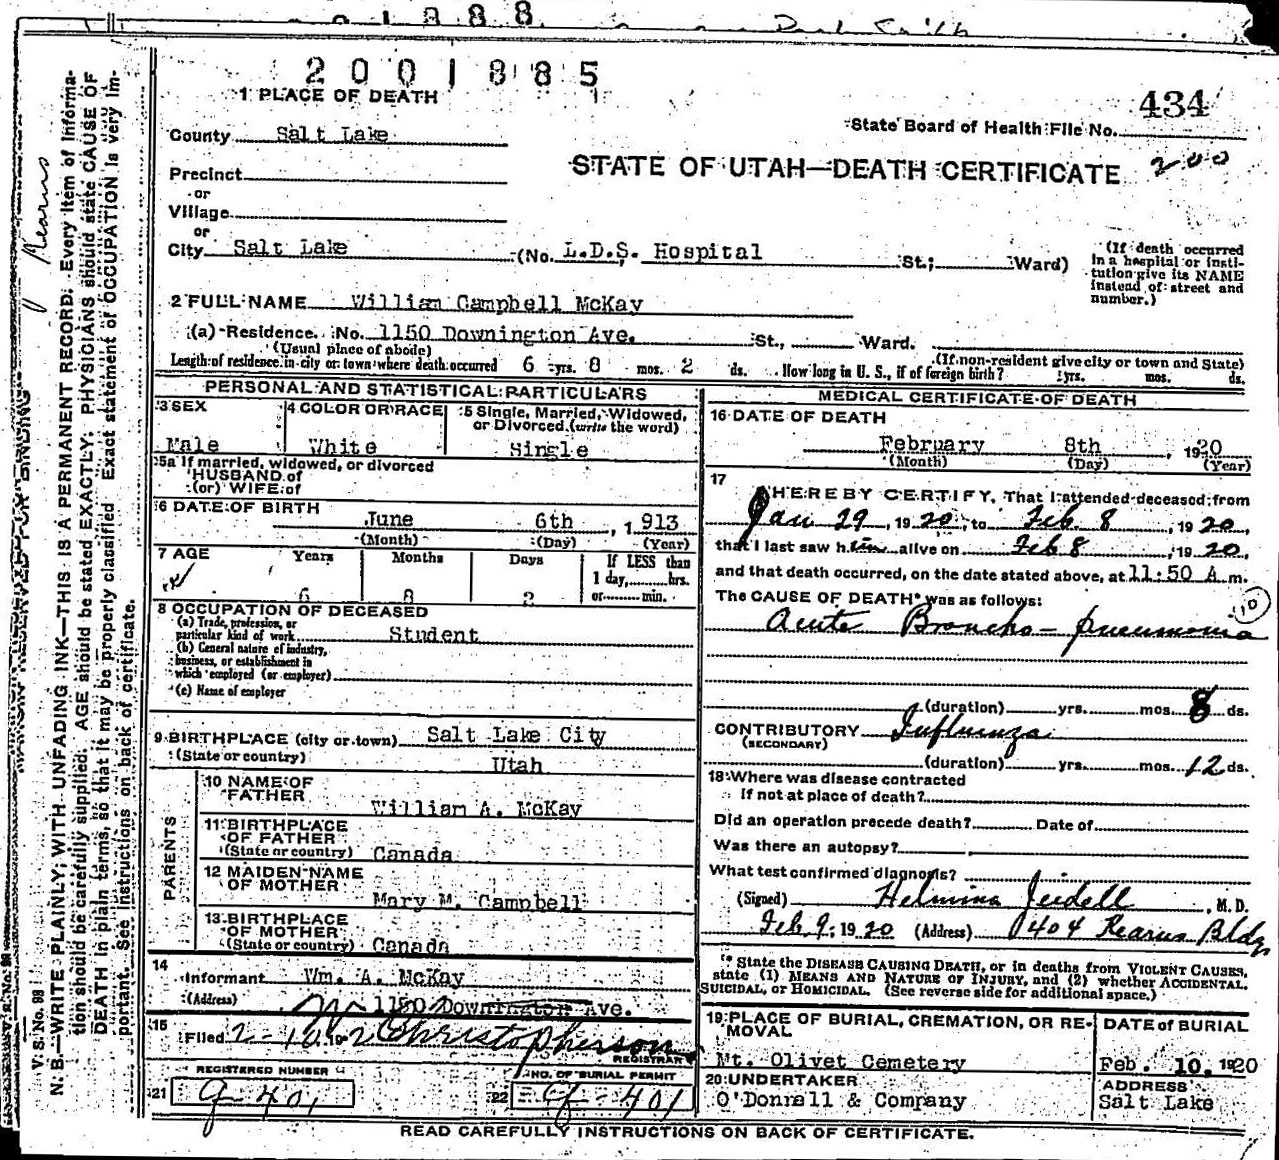 2001885
1 PLACE OF DEATH
434
County Salt Lake
State Board of Health File No.
STATE OF UTAH—DEATH CERTIFICATE 200
Precinct
or
Village
or
City Salt Lake (No. L.D.S. Hospital St.; Ward)
(If death occurred in a hospital or institution give its NAME instead of street and number.)
2 FULL NAME William Campbell McKay
(a) Residence. No. 1150 Downington Ave. St., Ward.
(Usual place of abode) (If non-resident give city or town and State)
Length of residence in city or town where death occurred 6 yrs. 8 mos. 2 ds. How long in U. S., if of foreign birth? yrs. mos. ds.
PERSONAL AND STATISTICAL PARTICULARS
3 SEX 4 COLOR OR RACE 5 Single, Married, Widowed, or Divorced (write the word)
Male White Single
5a If married, widowed, or divorced
HUSBAND of
(or) WIFE of
6 DATE OF BIRTH
June 6th, 1913
(Month) (Day) (Year)
7 AGE Years Months Days If LESS than
1 day, hrs.
or min.
6 8 2
8 OCCUPATION OF DECEASED
(a) Trade, profession, or
particular kind of work Student
(b) General nature of industry,
business, or establishment in
which employed (or employer)
(c) Name of employer
9 BIRTHPLACE (city or town) Salt Lake City
(State or country) Utah
PARENTS
10 NAME OF
FATHER William A. McKay
11 BIRTHPLACE
OF FATHER
(State or country) Canada
12 MAIDEN NAME
OF MOTHER Mary M. Campbell
13 BIRTHPLACE
OF MOTHER
(State or country) Canada
14
Informant Wm. A. McKay
(Address) 1150 Downington Ave.
15
Filed 2-10 Christopherson
REGISTRAR
REGISTERED NUMBER
21 g-401
NO. OF BURIAL PERMIT
22 g-401
MEDICAL CERTIFICATE OF DEATH
16 DATE OF DEATH
February 8th, 1920
(Month) (Day) (Year)
17
I HEREBY CERTIFY, That I attended deceased from
Jan 29, 1920, to Feb 8, 1920,
that I last saw him alive on Feb 8, 1920,
and that death occurred, on the date stated above, at 11:50 A m.
The CAUSE OF DEATH* was as follows: 10
Acute Broncho-pneumonia
(duration) yrs. mos. 8 ds.
CONTRIBUTORY Influenza
(SECONDARY)
(duration) yrs. mos. 12 ds.
18 Where was disease contracted
If not at place of death?
Did an operation precede death? Date of
Was there an autopsy?
What test confirmed diagnosis?
(Signed) Helmina Jeidell, M. D.
Feb 9, 1920 (Address) 1404 Kearns Bldg
* State the DISEASE CAUSING DEATH, or in deaths from VIOLENT CAUSES,
state (1) MEANS AND NATURE OF INJURY, and (2) whether ACCIDENTAL,
SUICIDAL, or HOMICIDAL. (See reverse side for additional space.)
19 PLACE OF BURIAL, CREMATION, OR REMOVAL
Mt. Olivet Cemetery
DATE of BURIAL
Feb. 10, 1920
20 UNDERTAKER
O'Donnell & Company
ADDRESS
Salt Lake
READ CAREFULLY INSTRUCTIONS ON BACK OF CERTIFICATE.
V. S. No. 98
N. B.—WRITE PLAINLY, WITH UNFADING INK—THIS IS A PERMANENT RECORD. Every item of information should be carefully supplied. AGE should be stated EXACTLY. PHYSICIANS should state CAUSE OF DEATH in plain terms, so that it may be properly classified. Exact statement of OCCUPATION is very important. See instructions on back of certificate.